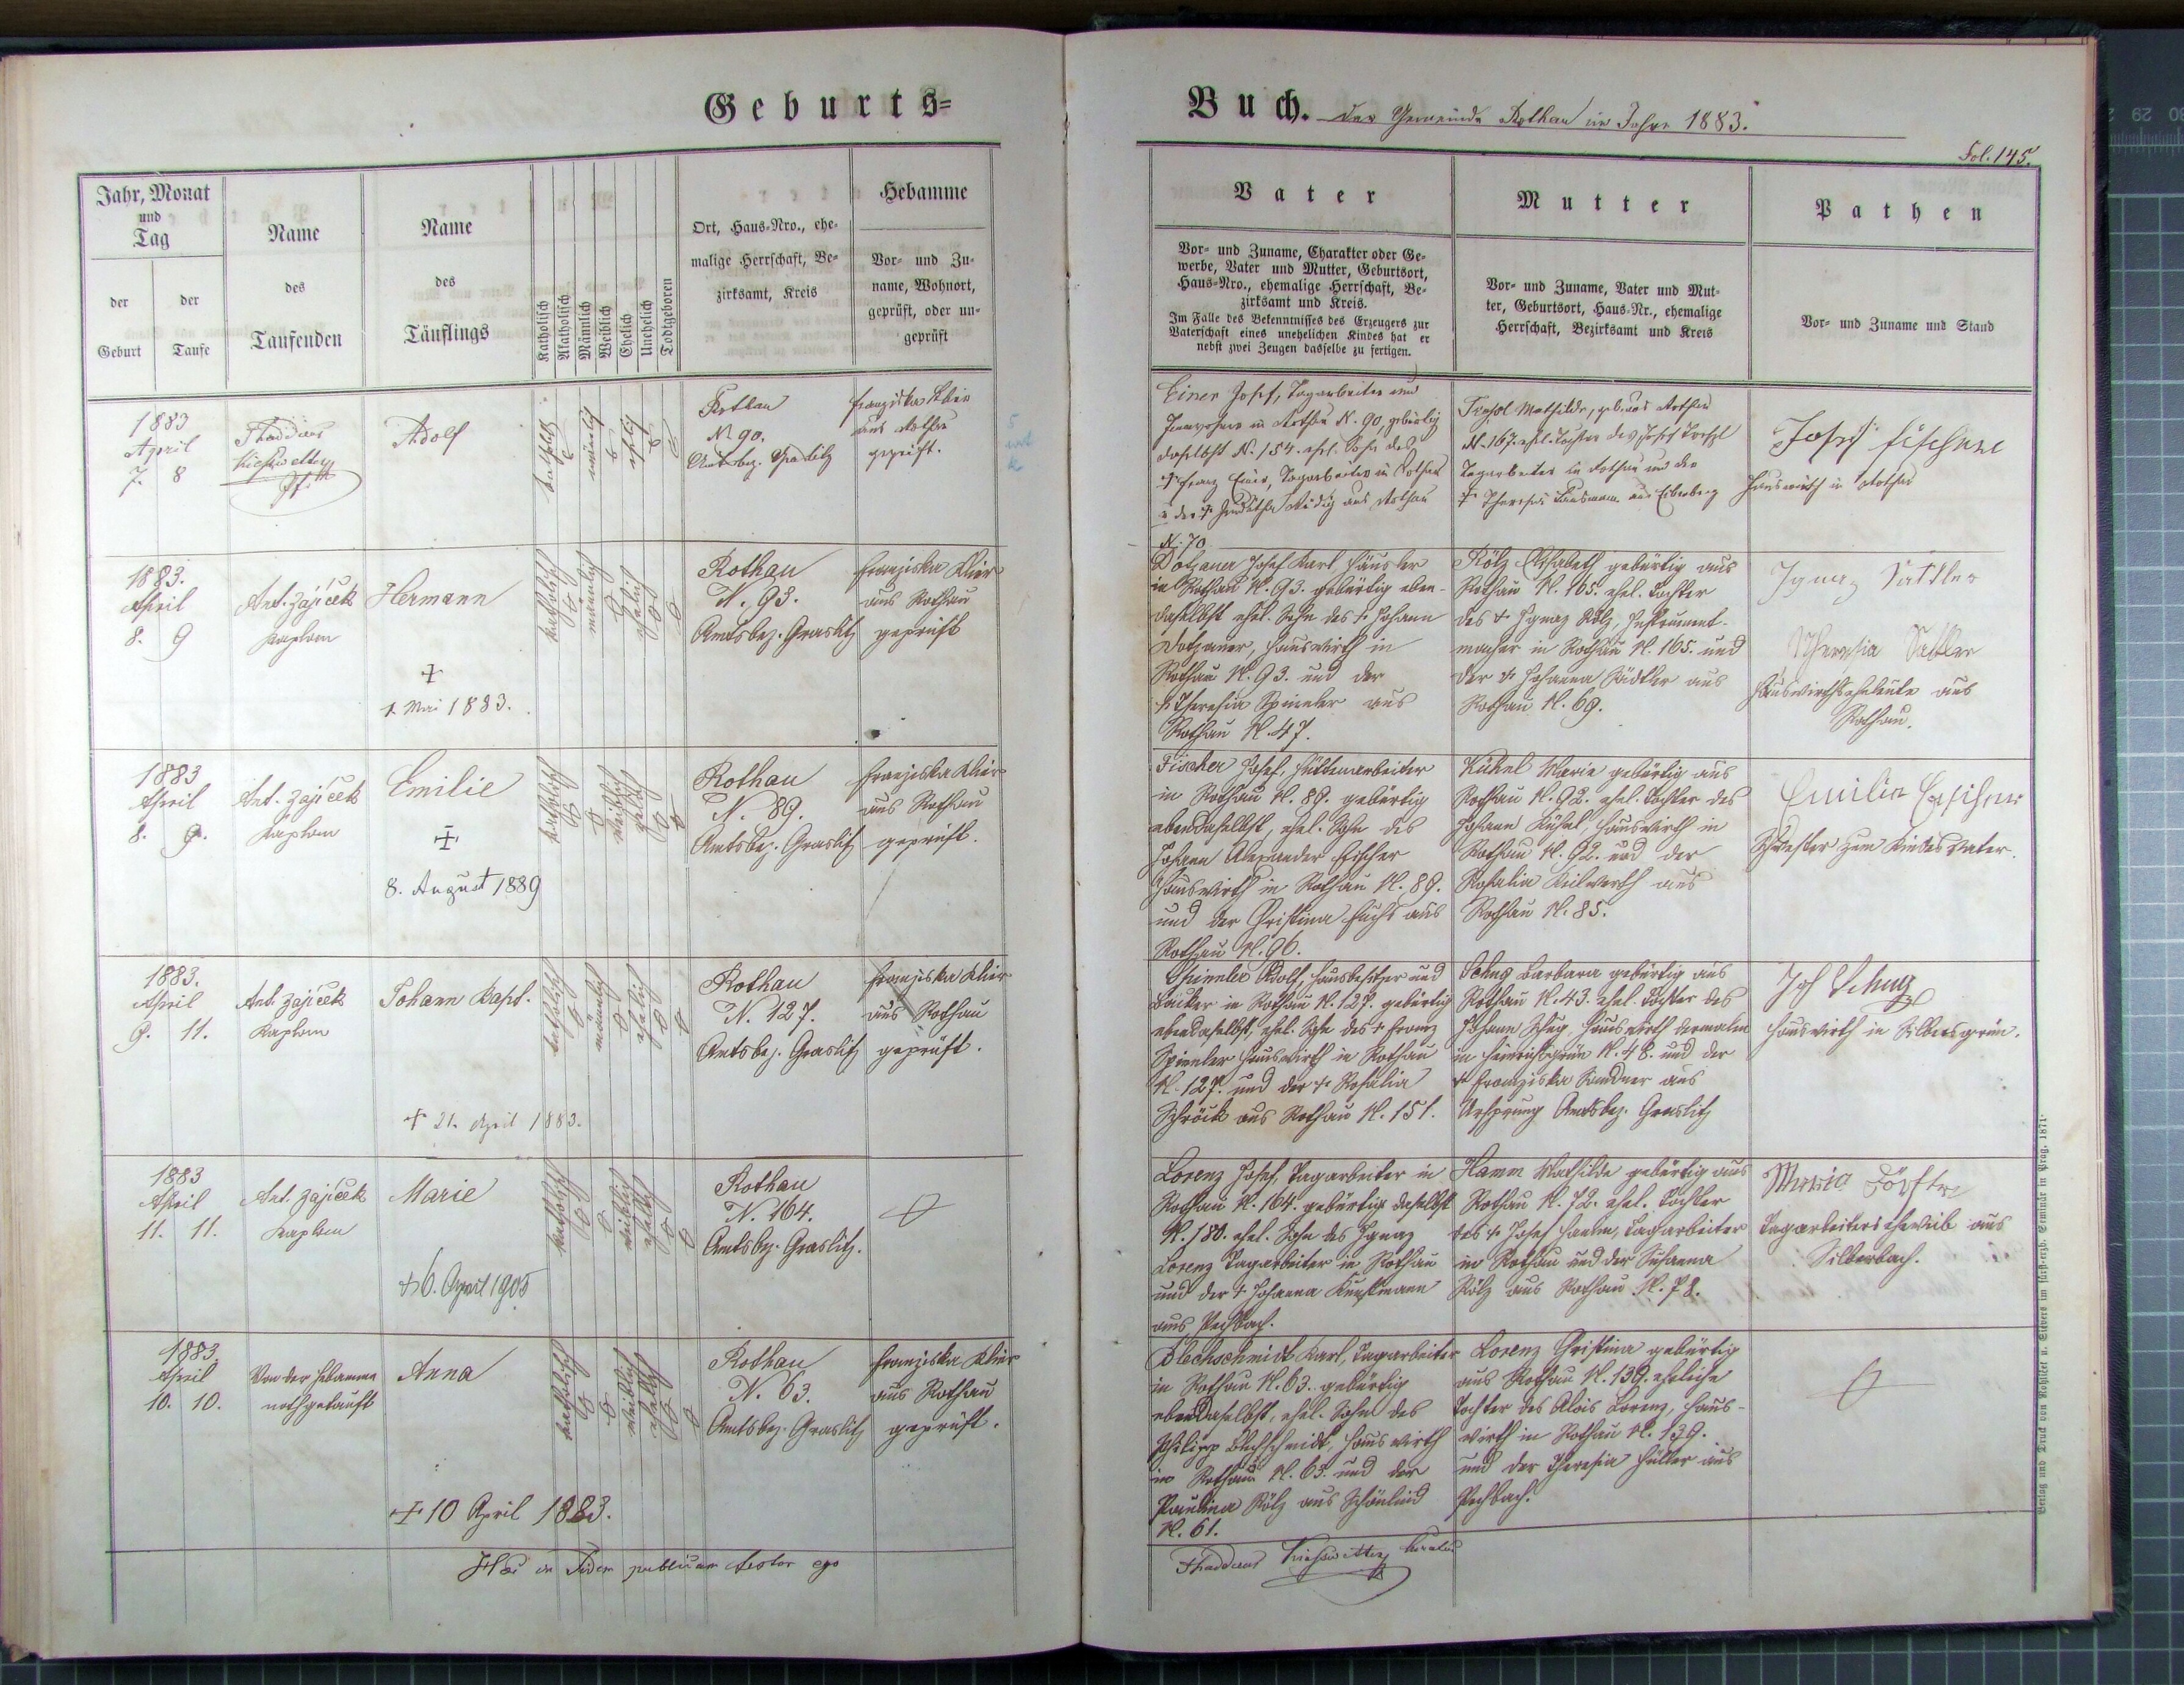 Geburts=
Buch. der Gemeinde Rothau im Jahre 1883.
Fol. 145.
Jahr, Monat
und
Tag
der
Geburt
der
Taufe
Name
des
Taufenden
Name
des
Täuflings
Katholisch
Akatholisch
Männlich
Weiblich
Ehelich
Unehelich
Todtgeboren
Ort, Haus-Nro., ehe-
malige Herrschaft, Be-
zirksamt, Kreis
Hebamme
Vor- und Zu-
name, Wohnort,
geprüft, oder un-
geprüft
Vater
Vor- und Zuname, Charakter oder Ge-
werbe, Vater und Mutter, Geburtsort,
Haus-Nro., ehemalige Herrschaft, Be-
zirksamt und Kreis.
Im Falle des Bekenntnisses des Erzeugers zur
Vaterschaft eines unehelichen Kindes hat er
nebst zwei Zeugen dasselbe zu fertigen.
Mutter
Vor- und Zuname, Vater und Mut-
ter, Geburtsort, Haus-Nr., ehemalige
Herrschaft, Bezirksamt und Kreis
Pathen
Vor- und Zuname und Stand
1883
April
7. 8
Thaddäus
Kieswetter
Adolf
katholisch
männlich
ehelich
Rothau
N. 90.
Amtsbez. Graslitz
Franziska Klier
aus Rothau
geprüft.
Einer Josef, Tagarbeiter und
Inwohner in Rothau N. 90, gebürtig
daselbst N. 154. ehel. Sohn des
† Franz Einer, Tagarbeiter in Rothau
u der † aus Rothau
N. 70
Mathilde, geb. aus Rothau
N. 167. ehel. Tochter des Josef
Tagarbeiter in Rothau und der
† Theresia aus Eibenberg
Josef Fischer
Hauswirth in Rothau
1883.
April
8. 9
Ant. Zajíček
Kaplan
Hermann
†
1. Mai 1883.
katholisch
männlich
ehelich
Rothau
N. 93.
Amtsbez. Graslitz
Franziska Klier
aus Rothau
geprüft
Dotzauer Josef Karl Häusler
in Rothau N. 93. gebürtig eben-
daselbst ehel. Sohn des † Johann
Dotzauer, Hauswirth in
Rothau N. 93. und der
† Theresia Spinnler aus
Rothau N. 47.
Kölz Elisabeth gebürtig aus
Rothau N. 165. ehel. Tochter
des † Ignaz Kölz, Instrument-
macher in Rothau N. 165. und
der † Johanna Sädtler aus
Rothau N. 69.
Ignaz Sattler
Theresia Sattler
Hauswirthseheleute aus
Rothau.
1883
April
8. 9.
Ant. Zajíček
Kaplan
Emilie
†
8. August 1889
katholisch
weiblich
ehelich
Rothau
N. 89.
Amtsbez. Graslitz
Franziska Klier
aus Rothau
geprüft.
Fischer Josef, Hüttenarbeiter
in Rothau N. 89. gebürtig
ebendaselbst, ehel. Sohn des
Johann Alexander Fischer
Hauswirth in Rothau N. 89.
und der Christina Fuchs aus
Rothau N. 96.
Kühnl Marie gebürtig aus
Rothau N. 92. ehel. Tochter des
Johann Kühnl, Hauswirth in
Rothau N. 92. und der
Rosalia aus
Rothau N. 85.
Emilia Fischer
Schwester zum Kindesvater.
1883.
April
9. 11.
Ant. Zajíček
Kaplan
Johann Bapt.
† 21. April 1883.
katholisch
männlich
ehelich
Rothau
N. 127.
Amtsbez. Graslitz
Franziska Klier
aus Rothau
geprüft.
Spinnler Adolf, Hausbesitzer und
Bäcker in Rothau N. 127. gebürtig
ebendaselbst, ehel. Sohn des † Franz
Spinnler Hauswirth in Rothau
N. 127. und der † Rosalia
Schröck aus Rothau N. 151.
Schug Barbara gebürtig aus
Rothau N. 43. ehel. Tochter des
Johann Schug, Hauswirth dermalen
in Heinrichsgrün N. 48. und der
† Franziska Sandner aus
Ursprung Amtsbez. Graslitz
Joh Schug
Hauswirth in Silbersgrün.
1883
April
11. 11.
Ant. Zajíček
Kaplan
Marie
† 6. April 1905
katholisch
weiblich
ehelich
Rothau
N. 164.
Amtsbez. Graslitz.
Lorenz Josef, Tagarbeiter in
Rothau N. 164. gebürtig daselbst
N. 180. ehel. Sohn des Ignaz
Lorenz Tagarbeiter in Rothau
und der † Johanna Kunstmann
aus Pechbach.
Hamm Mathilde gebürtig aus
Rothau N. 72. ehel. Tochter
des † Josef Hamm, Tagarbeiter
in Rothau und der Susanna
Kölz aus Rothau N. 78.
Maria Förster
Tagarbeiters eheweib aus
Silberbach.
1883.
April
10. 10.
Von der Hebamme
nothgetauft
Anna
† 10 April 1883.
katholisch
weiblich
ehelich
Rothau
N. 63.
Amtsbez. Graslitz
Franziska Klier
aus Rothau
geprüft.
Blechschmidt Karl, Tagarbeiter
in Rothau N. 63. gebürtig
ebendaselbst, ehel. Sohn des
Philipp Blechschmidt, Hauswirth
in Rothau N. 63. und der
Paulina Kölz aus Schönlind
N. 61.
Lorenz Christina gebürtig
aus Rothau N. 139. eheliche
Tochter des Alois Lorenz, Haus-
wirth in Rothau N. 139.
und der Theresia Hüller aus
Pechbach.
Hæc in Fidem publicam testor ego
Thaddaeus Kieswetter
Verlag und Druck von Rohliček u. Sievers im fürst-erzb. Seminär in Prag. 1871.